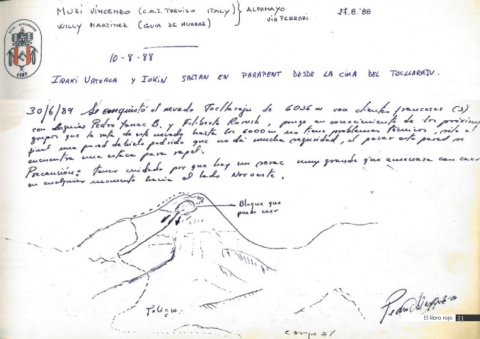 MUZI VINCENZO (C.A.I. TREVISO ITALY) } ALPAMAYO 27.8.'88
WILLY MARTINEZ (GUIA DE HUARAZ) VIA FERRARI
10-8-88
IÑAKI URTEAGA Y IOKIN SALTAN EN PARAPENT DESDE LA CIMA DEL TOCLLARAJU.
30/6/89 Se conquistó el nevado Tocllaraju de 6036 m con clientes franceses (3)
con Pedro Yanac B. y Filiberto , pongo en conocimiento de los próximos
grupos que la ruta de este nevado hasta los 6000 m no tiene problemas técnicos, al
final una pared de hielo podrido que no da mucha seguridad, al pasar esta pared se
encuentra una estaca para rapel.
Precaución: Tener cuidado por que hay un serac muy grande que amenaza con caer
en cualquier momento hacia el lado Noroeste.
Bloque que
puede caer
Peligro
Pedro
El libro rojo 21